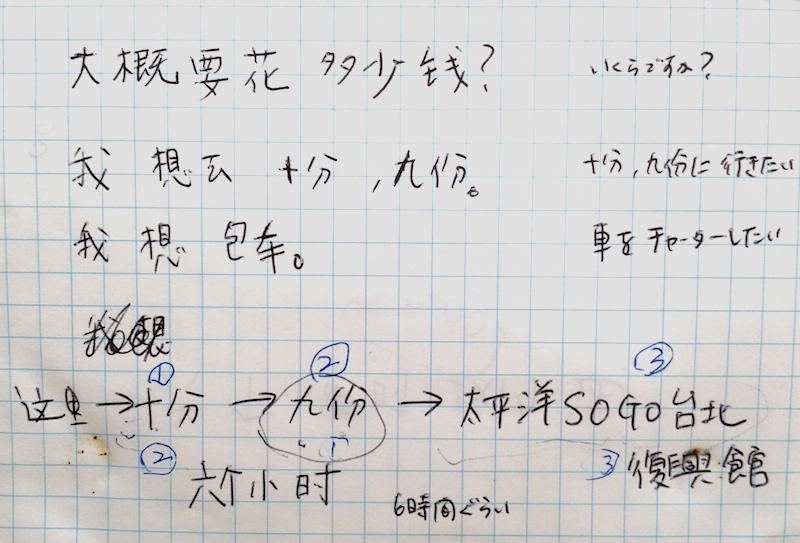 大概要花多少钱? いくらですか?
我想去十分,九份。 十分,九份に行きたい
我想包车。 車をチャーターしたい
我想
① ② ③
这里→十分→九份→太平洋SOGO台北
② 1 ③復興館
六个小时 6時間ぐらい